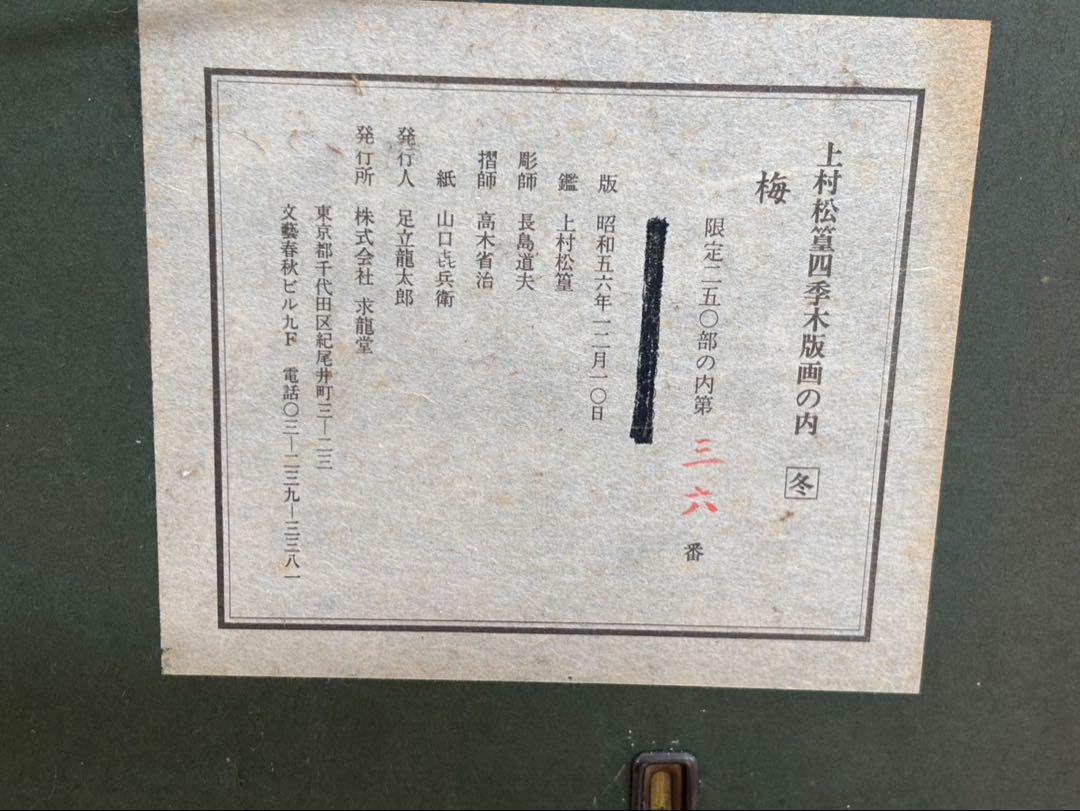 上村松篁四季木版画の内 冬
梅
限定二五〇部の内第 三六 番
版 昭和五六年一二月一〇日
鑑 上村松篁
彫師 長島道夫
摺師 高木省治
紙 山口㐂兵衛
発行人 足立龍太郎
発行所 株式会社 求龍堂
東京都千代田区紀尾井町三―二三
文藝春秋ビル九F 電話〇三―二三九―三三八一